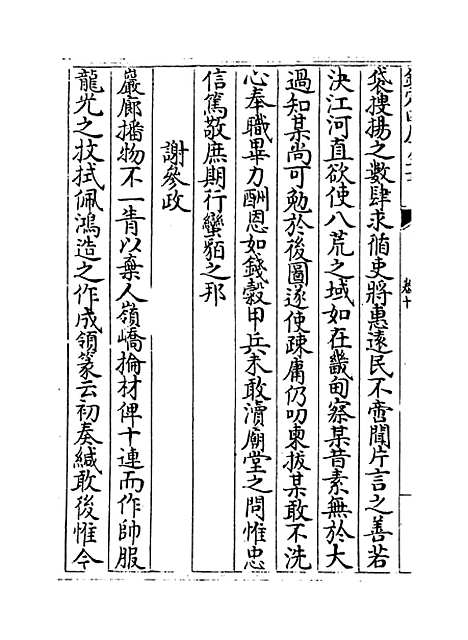 卷十
袋摟揚之數肆求循吏將惠遠民不啻聞片言之善若
決江河直欲使八荒之域如在畿甸察某昔素無於大
過知某尚可勉於後圖遂使疎庸仍叨柬拔某敢不洗
心奉職畢力酬恩如錢穀甲兵未敢瀆廟堂之問惟忠
信篤敬庶期行蠻貊之邦
謝參政
巖廊播物不一眚以棄人嶺嶠掄材俾十連而作帥服
龍光之抆拭佩鴻造之作成領篆云初奏緘敢後惟今